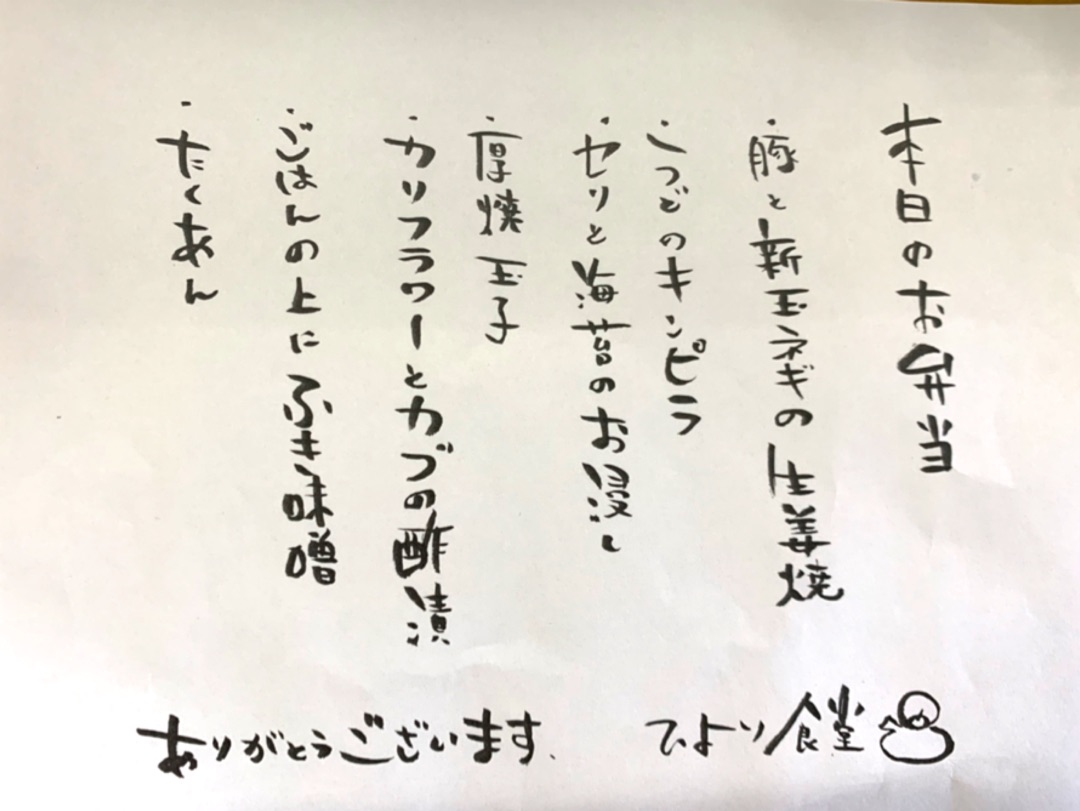 本日のお弁当
・豚と新玉ネギの生姜焼
・こつどのキンピラ
・セリと海苔のお浸し
厚焼玉子
・カリフラワーとカブの酢漬
・ごはんの上にふき味噌
・たくあん
ひより食堂
ありがとうございます、